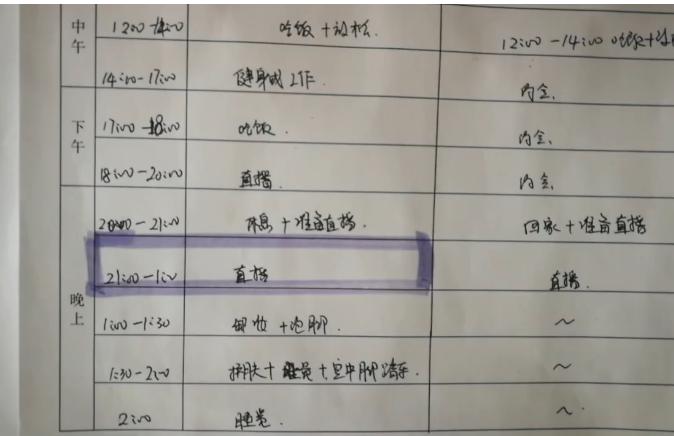 中午
12:00-14:00 吃饭+放松.
12:00-14:00 吃饭+
14:00-17:00 健身或工作
内会.
下午
17:00-18:00 吃饭.
内会.
18:00-20:00 直播.
内会.
晚上
20:00-21:00 休息+准备直播.
回家+准备直播
21:00-1:00 直播
直播.
1:00-1:30 卸妆+泡脚.
~
1:30-2:00 护肤++空中脚踏车.
~
2:00 睡觉.
~